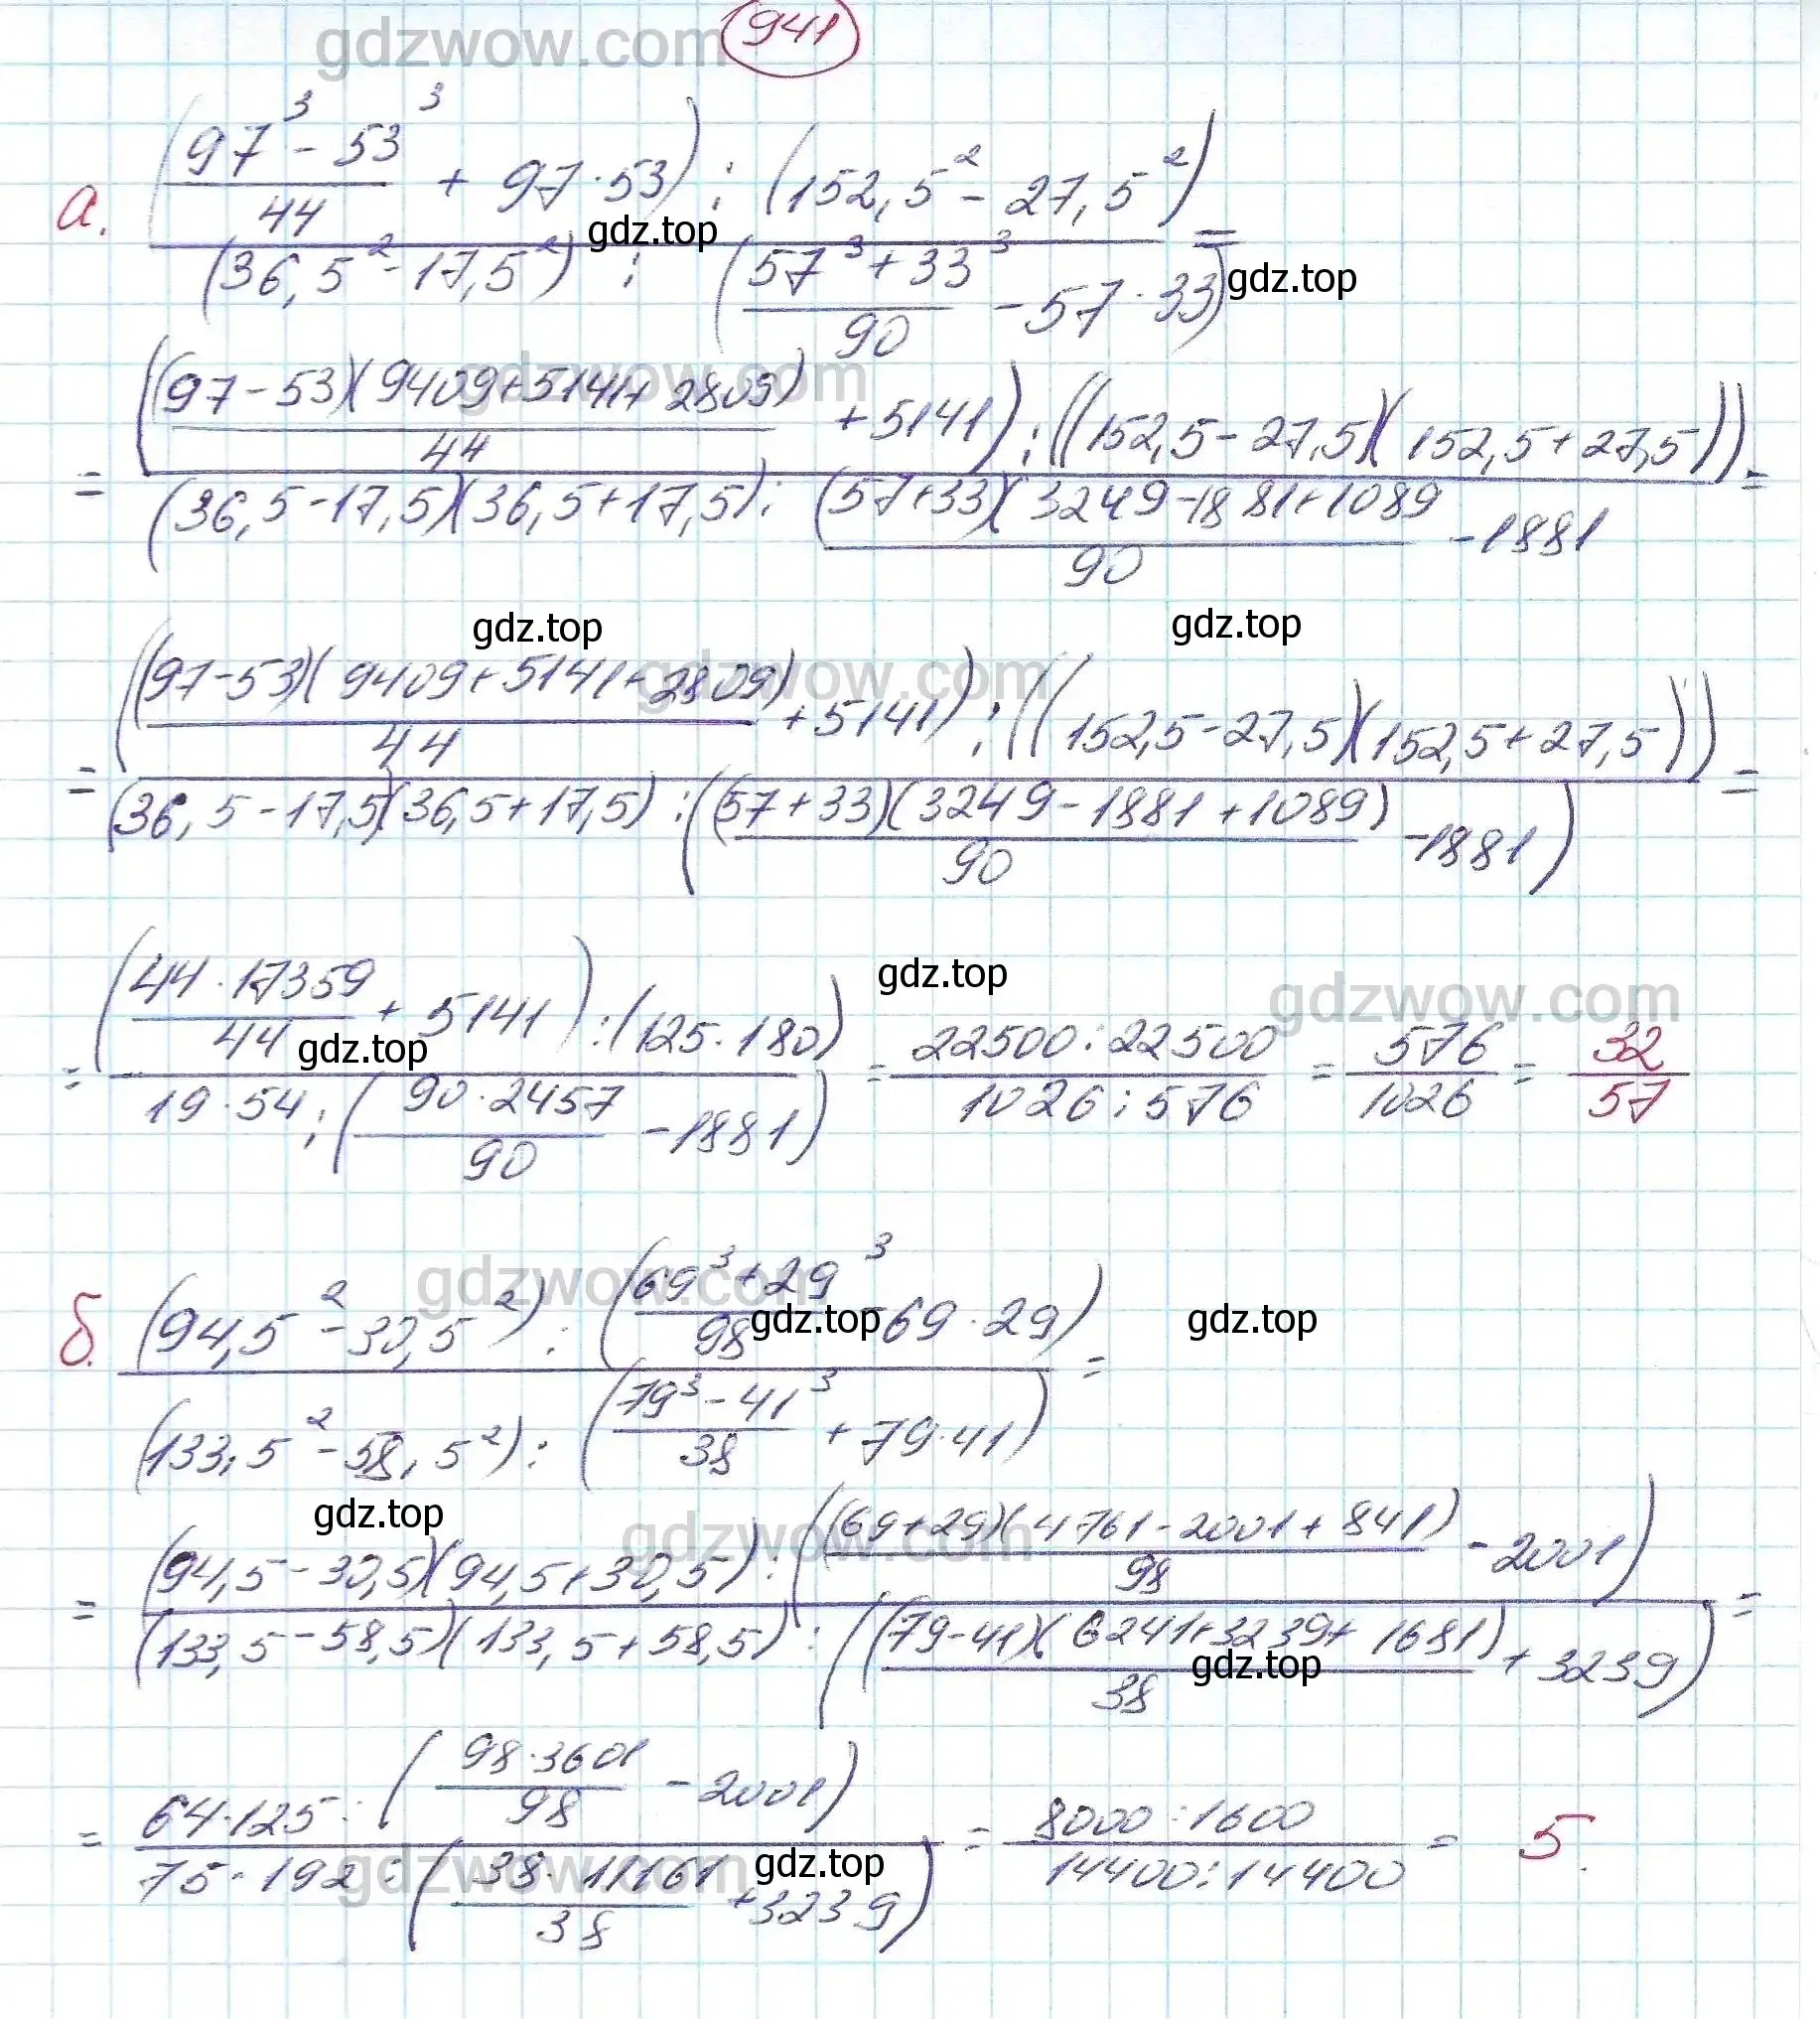 gdzwow.com
941
а. ((97³ - 53³)/44 + 97 · 53) : (152,5² - 27,5²) / (36,5² - 17,5²) : ((57³ + 33³)/90 - 57 · 33) =
gdz.top
gdz.top
gdzwow.com
= (((97 - 53)(9409 + 5141 + 2809))/44 + 5141) : ((152,5 - 27,5)(152,5 + 27,5)) / (36,5 - 17,5)(36,5 + 17,5) : ((57 + 33)(3249 - 1881 + 1089)/90 - 1881 =
gdz.top
gdz.top
gdzwow.com
= (((97 - 53)(9409 + 5141 + 2809))/44 + 5141) : ((152,5 - 27,5)(152,5 + 27,5)) / (36,5 - 17,5)(36,5 + 17,5) : (((57 + 33)(3249 - 1881 + 1089))/90 - 1881) =
gdz.top
gdzwow.com
gdz.top
= ((44 · 17359)/44 + 5141) : (125 · 180) / 19 · 54 : ((90 · 2457)/90 - 1881) = 22500 : 22500 / 1026 : 576 = 576/1026 = 32/57
gdzwow.com
б. (94,5² - 30,5²) : ((69³ + 29³)/98 - 69 · 29) / (133,5² - 58,5²) : ((79³ - 41³)/38 + 79 · 41) =
gdz.top
gdz.top
gdz.top
gdzwow.com
= (94,5 - 30,5)(94,5 + 30,5) : (((69 + 29)(4761 - 2001 + 841))/98 - 2001) / (133,5 - 58,5)(133,5 + 58,5) : (((79 - 41)(6241 + 3239 + 1681))/38 + 3239) =
gdz.top
= 64 · 125 : ((98 · 3601)/98 - 2001) / 75 · 192 : ((38 · 11161)/38 + 3239) = 8000 : 1600 / 14400 : 14400 = 5.
gdzwow.com
gdz.top